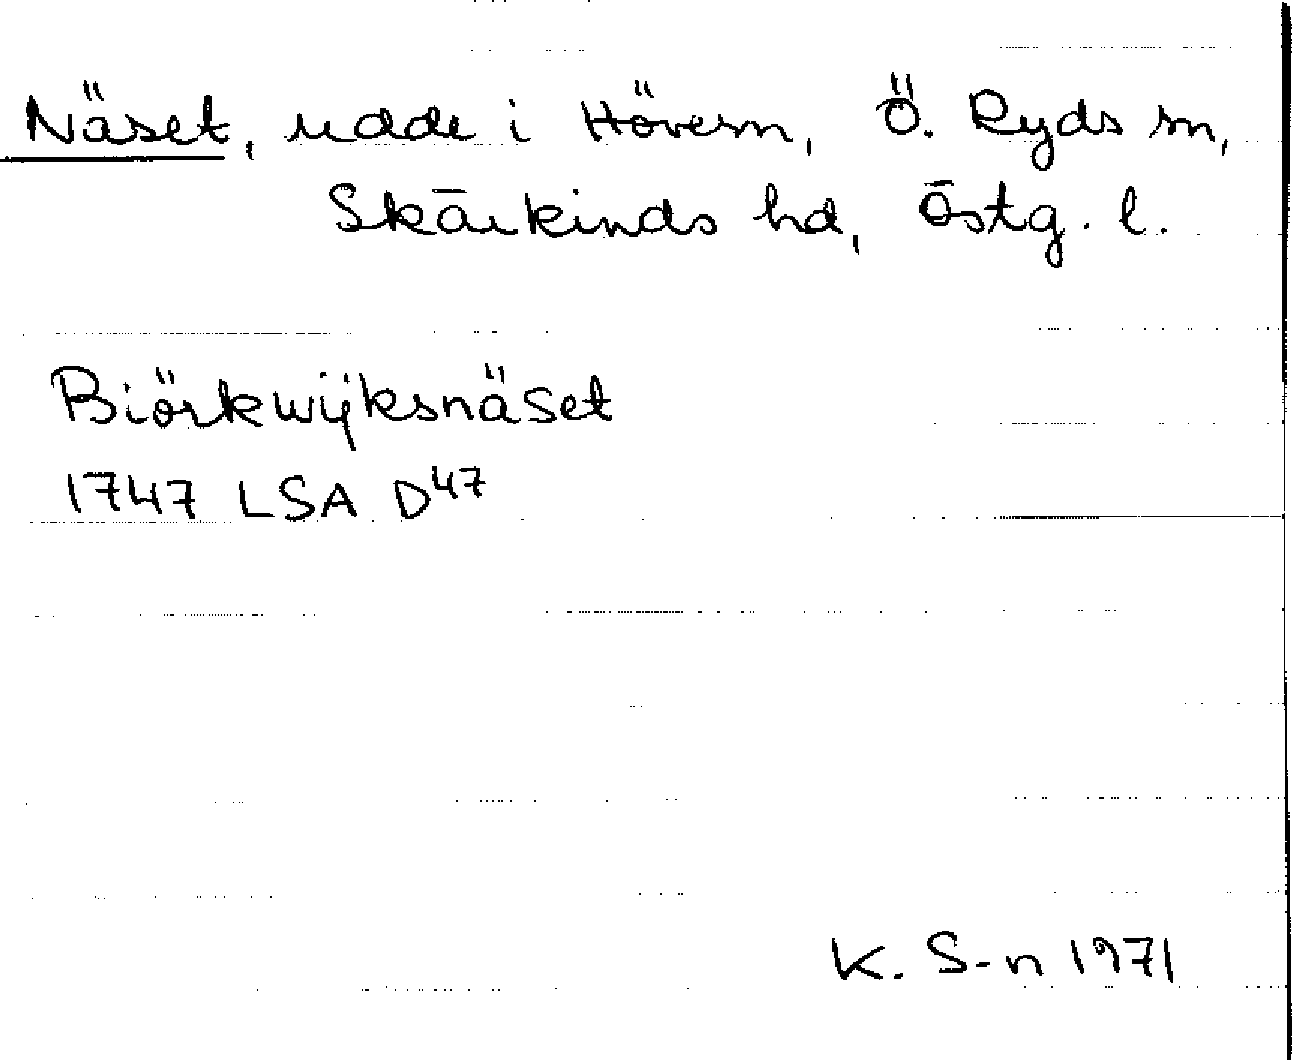 Näset, udde i Hövern, Ö. Ryds sn,
Skärkinds hd, Östg. l.
Biörkwijksnäset
1747 LSA D47
K. S-n 1971